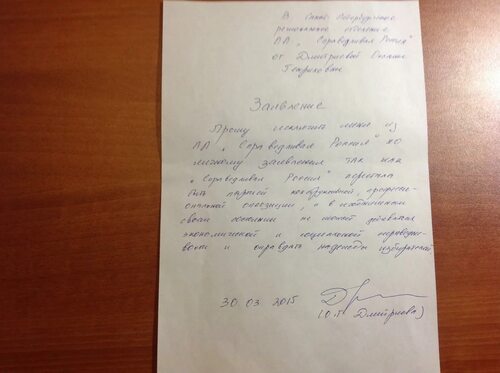 В Санкт-Петербургское
региональное отделение
ПП "Справедливая Россия"
от Дмитриевой Оксаны
Генриховны
Заявление
Прошу исключить меня из
ПП "Справедливая Россия" по
личному заявлению так как
"Справедливая Россия" перестала
быть партией конструктивной, професси-
ональной оппозиции, и в
своем не может добиваться
экономической и социальной справедли-
вости и оправдать надежды избирателей
30.03.2015
(О.Г. Дмитриева)